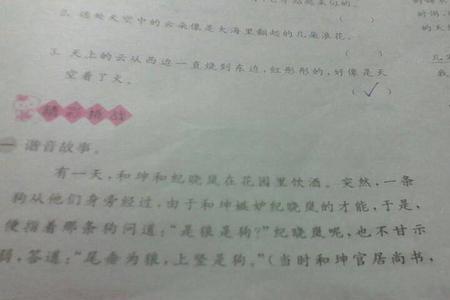 2. 远处天空中的云朵像是大海里翻起的几朵浪花。
( )
3. 天上的云从西边一直烧到东边,红彤彤的,好像是天
空着了火。
( ✓ )
精彩挑战
一 谐音故事。
有一天,和珅和纪晓岚在花园里饮酒。突然,一条
狗从他们身旁经过,由于和珅嫉妒纪晓岚的才能,于是,
便指着那条狗问道:“是狼是狗?”纪晓岚呢,也不甘示
弱,答道:“尾垂为狼,上竖是狗。”(当时和珅官居尚书,